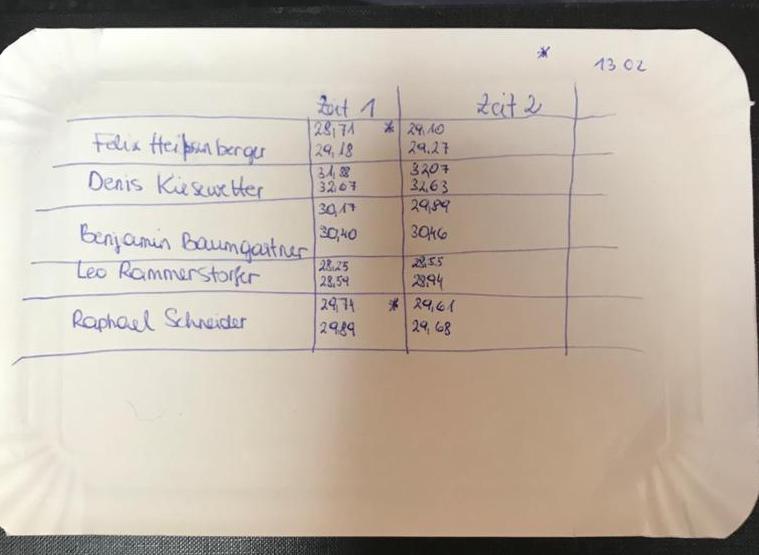 * 13 02
Zeit 1 Zeit 2
28,71 * 29.10
Felix 29,18 29.27
31,88 3207
Denis Kiesewetter 32,07 32,63
30,17 29,89
Benjamin Baumgartner 30,40 30,46
28,25 28,55
Leo Rammerstorfer 28,59 28,94
29,71 * 29,61
Raphael Schneider 29,89 29,68